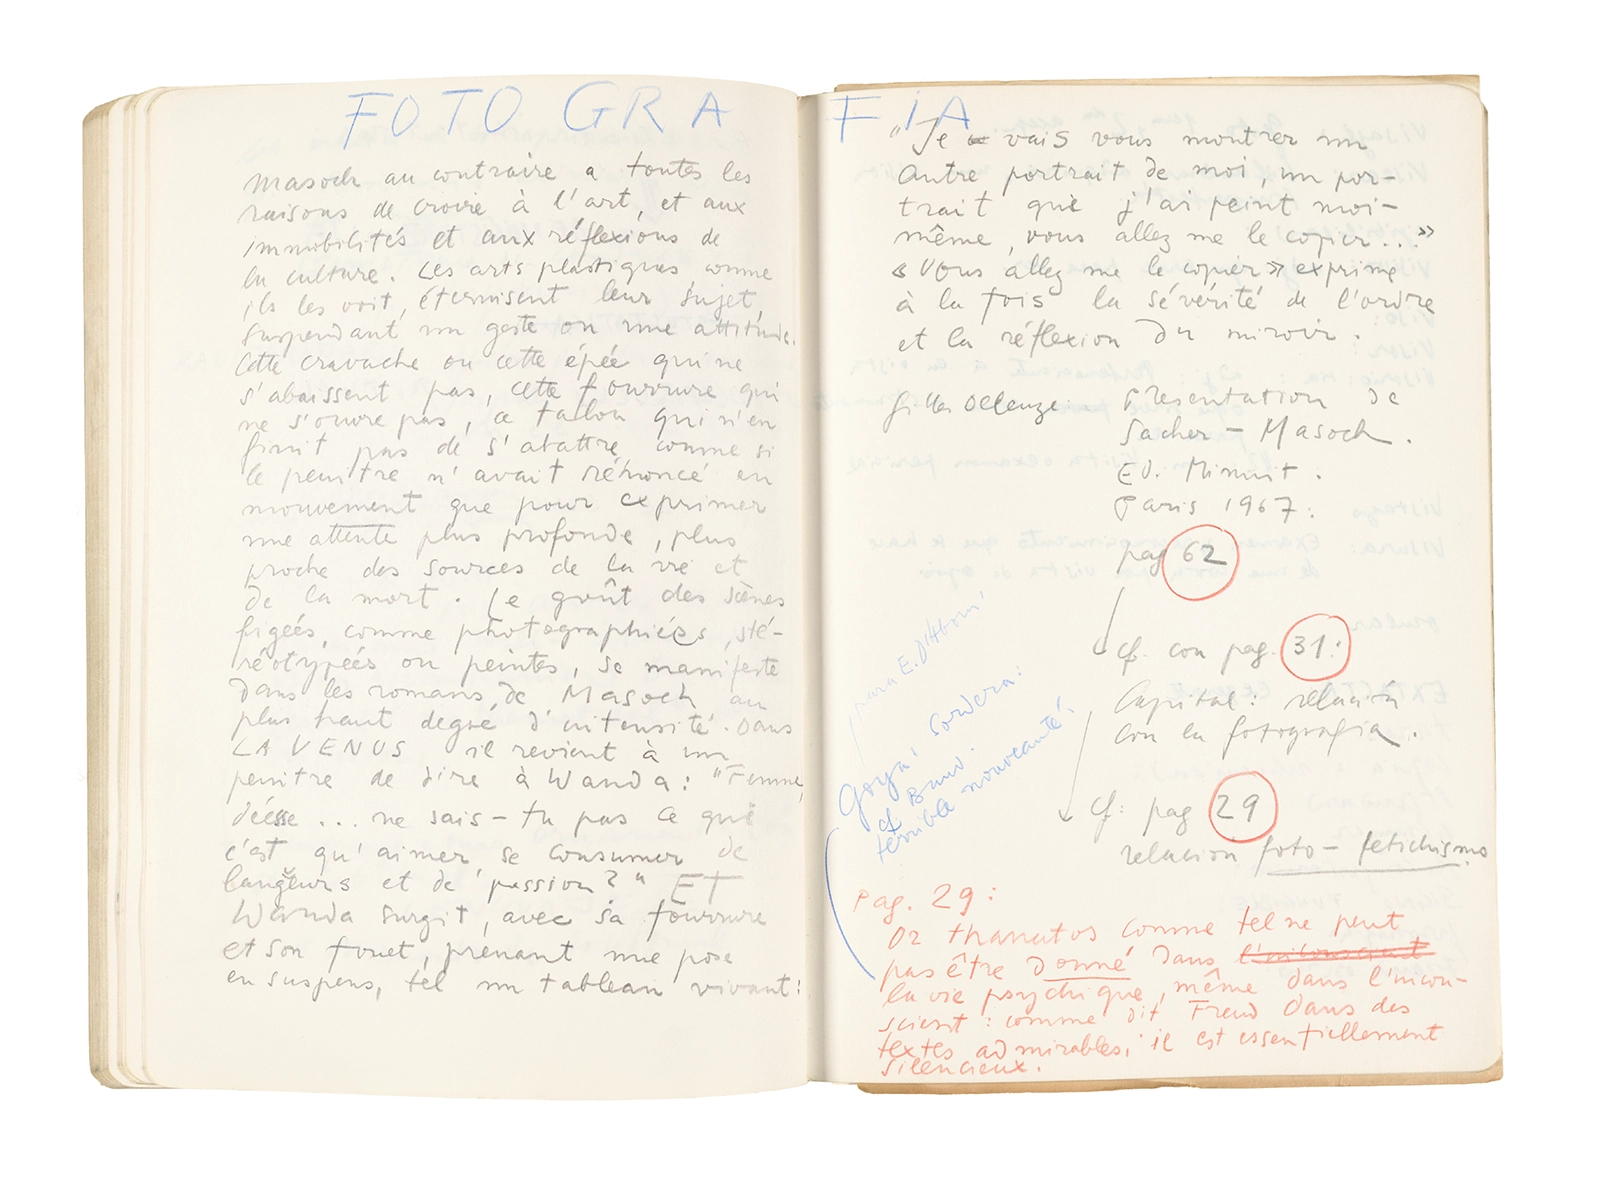 FOTO GRA
Masoch au contraire a toutes les
raisons de croire à l'art, et aux
immobilités et aux réflexions de
la culture. Les arts plastiques comme
ils les voit, éternisent leur sujet,
suspendant un geste ou une attitude.
Cette cravache ou cette épée qui ne
s'abaissent pas, cette fourrure qui
ne s'ouvre pas, ce talon qui n'en
finit pas de s'abattre, comme si
le peintre n'avait rénoncé en
mouvement que pour exprimer
une attente plus profonde, plus
proche des sources de la vie et
de la mort. Le goût des scènes
figées, comme photographiées, sté-
réotypées ou peintes, se manifeste
dans les romans de Masoch au
plus haut degré d'intensité. Dans
LA VENUS il revient à un
peintre de dire à Wanda: "Femme,
déesse ... ne sais-tu pas ce que
c'est qu'aimer, se consumer de
langeurs et de passion?" ET
Wanda surgit, avec sa fourrure
et son fouet, prenant une pose
en suspens, tel un tableau vivant:
FIA
"Je vais vous montrer un
autre portrait de moi, un por-
trait que j'ai peint moi-
même, vous allez me le copier..."
« Vous allez me le copier » exprime
à la fois la sévérité de l'ordre
et la réflexion du miroir.
Gilles Deleuze: Presentation de
Sacher-Masoch.
Ed. Minuit.
Paris 1967:
pag 62
cf. con pag. 31:
Capital: relación
con la fotografia.
cf: pag 29
relacion foto-fetichismo
para E.
Goya! Sordera:
terrible nouveauté!
Pag. 29:
Or thanatos comme tel ne peut
pas être donné dans l'inconscient
la vie psychique, même dans l'incon-
scient: comme dit Freud dans des
textes admirables, il est essentiellement
silencieux.